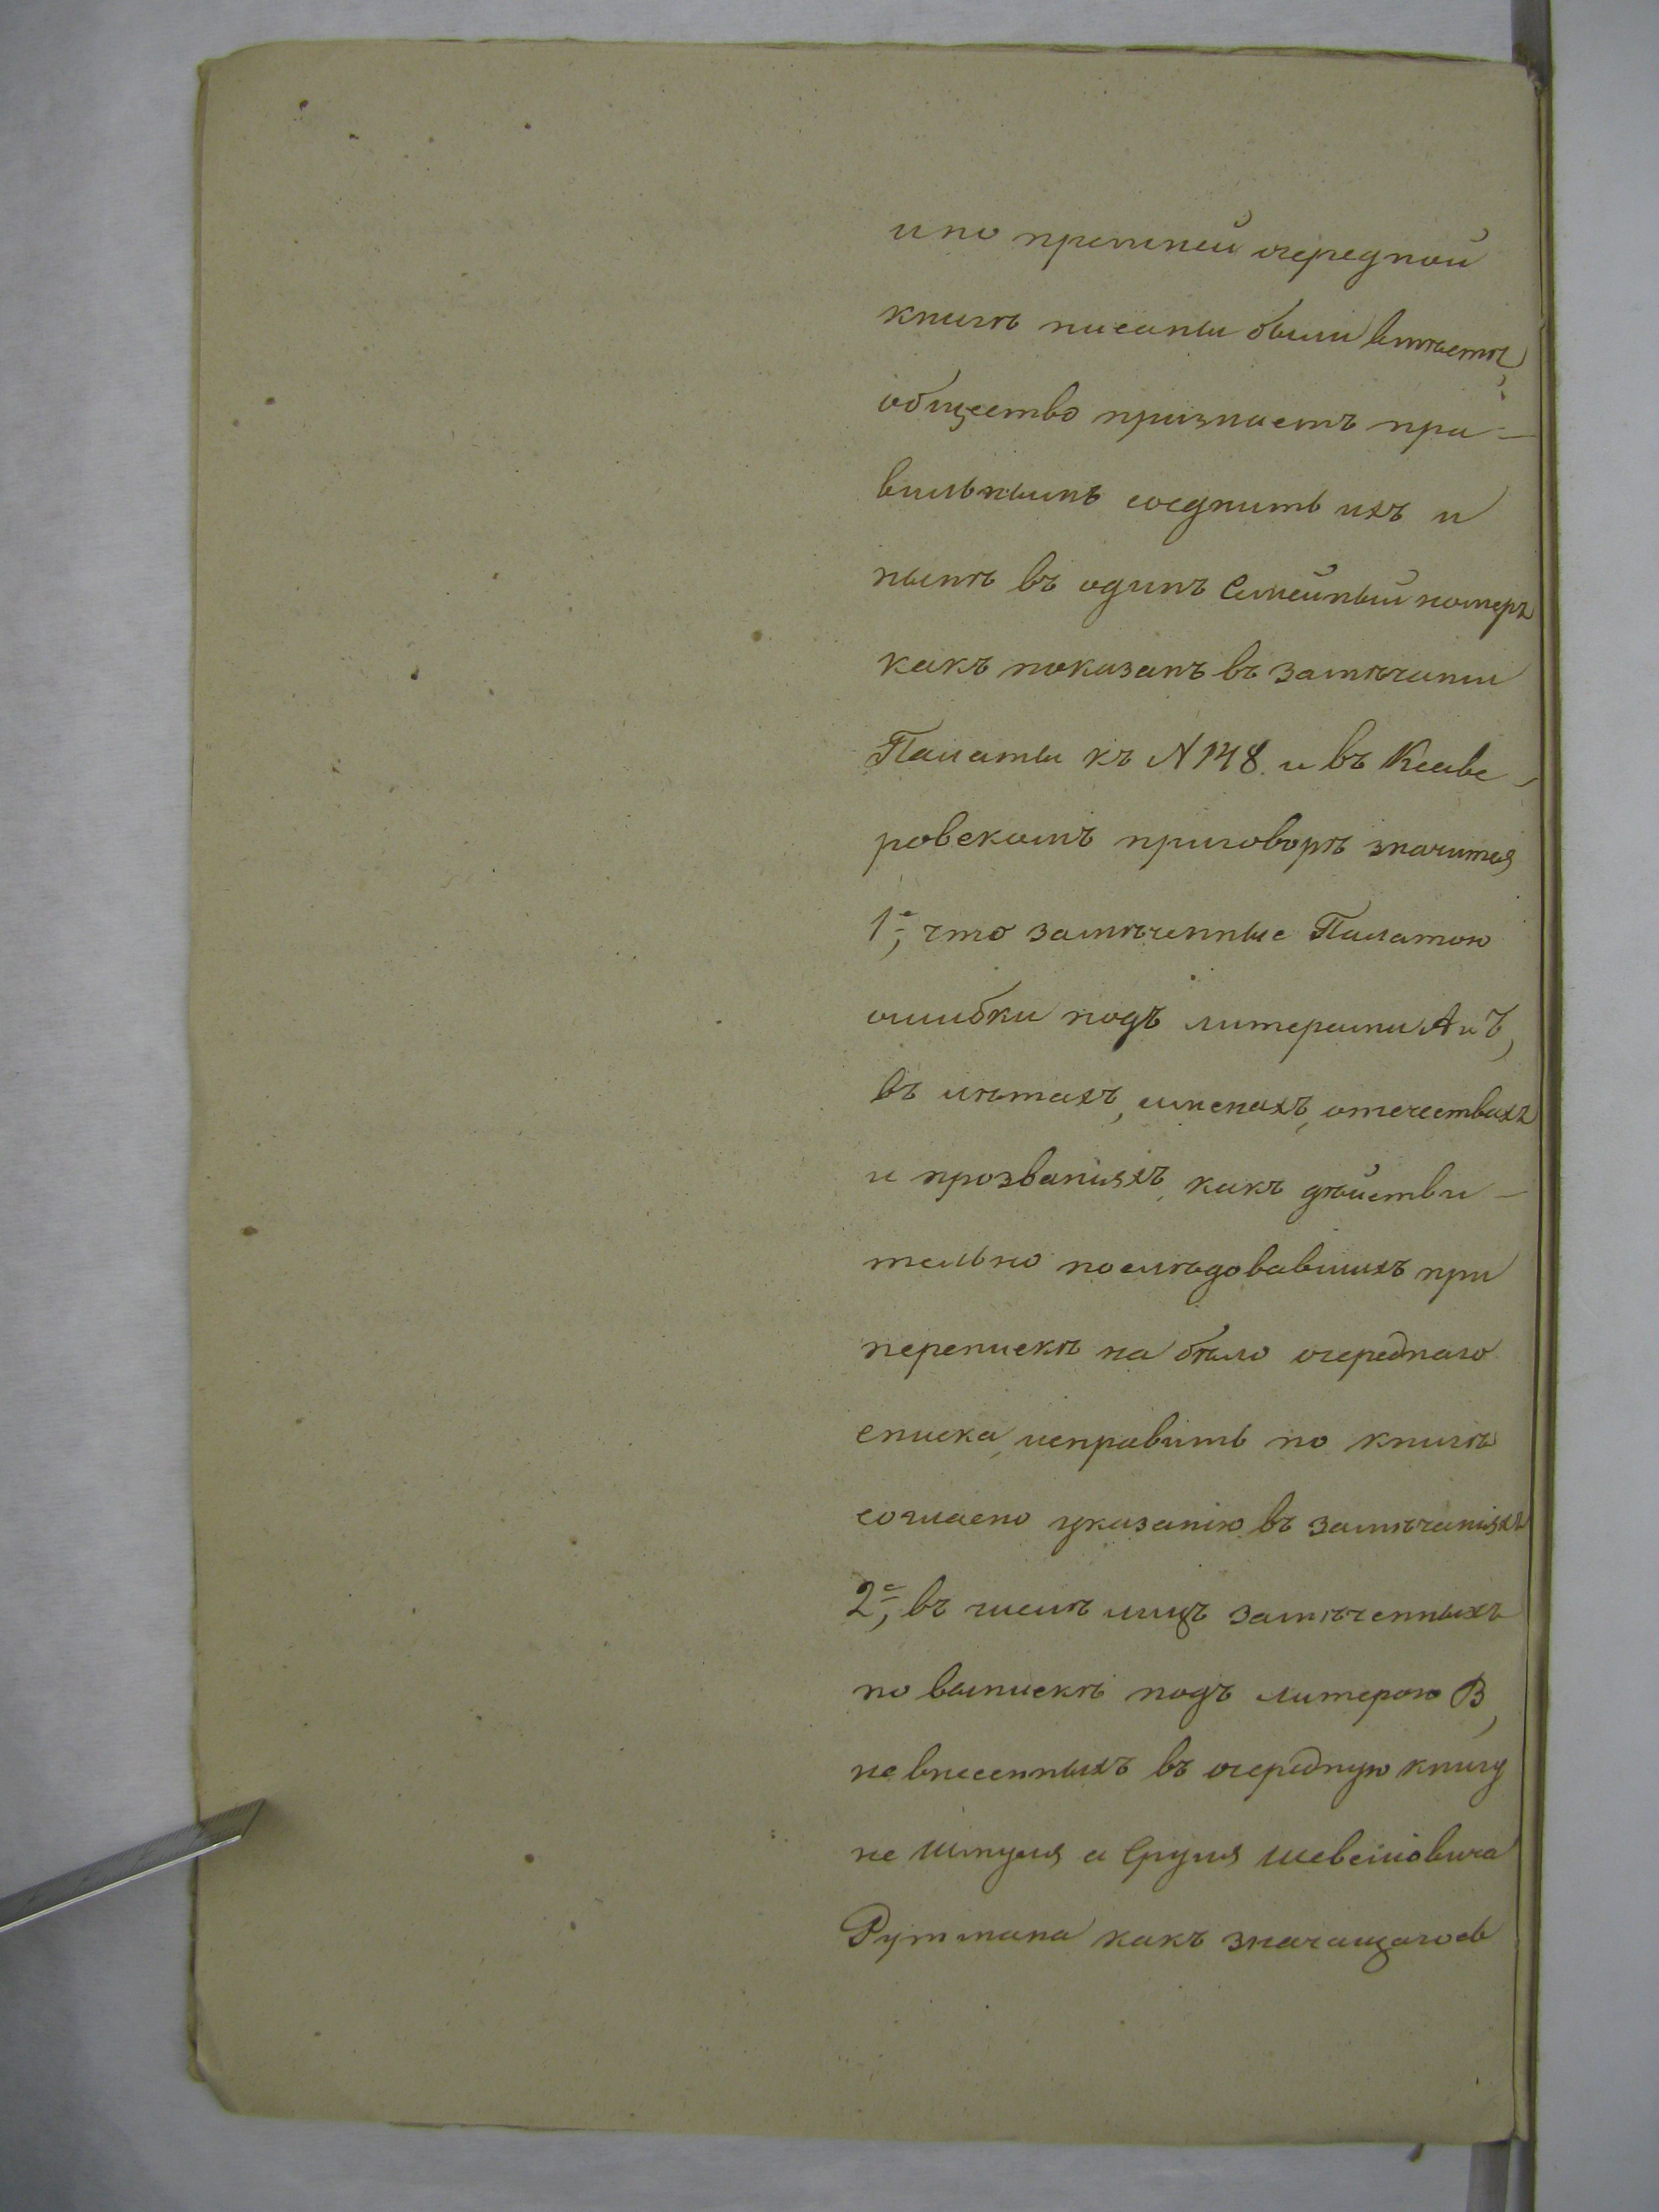 и по прежней очередной
книгѣ писаны были вмѣстѣ,
общество признаетъ пра-
вильнымъ соеднить ихъ и
нынѣ въ одинъ Семейный номеръ
какъ показанъ въ замѣчании
Палаты къ N 148. и въ Ксаве-
ровскомъ приговорѣ значится
1е, что замѣченные Палатою
ошибки подъ литерами А и Б,
въ лѣтахъ, именахъ, отечествахъ
и прозванияхъ, какъ дѣйстви-
тельно послѣдовавшихъ при
перепискѣ на бѣло очереднаго
списка, исправить по книгѣ
согласно указанію въ замѣчаніяхъ
2е, въ числѣ лицъ замѣченныхъ
по выпискѣ подъ литерою В,
не внесенныхъ въ очередную книгу
не Шмуля а Сруля Шевелiовича
Рутмана какъ значащагося